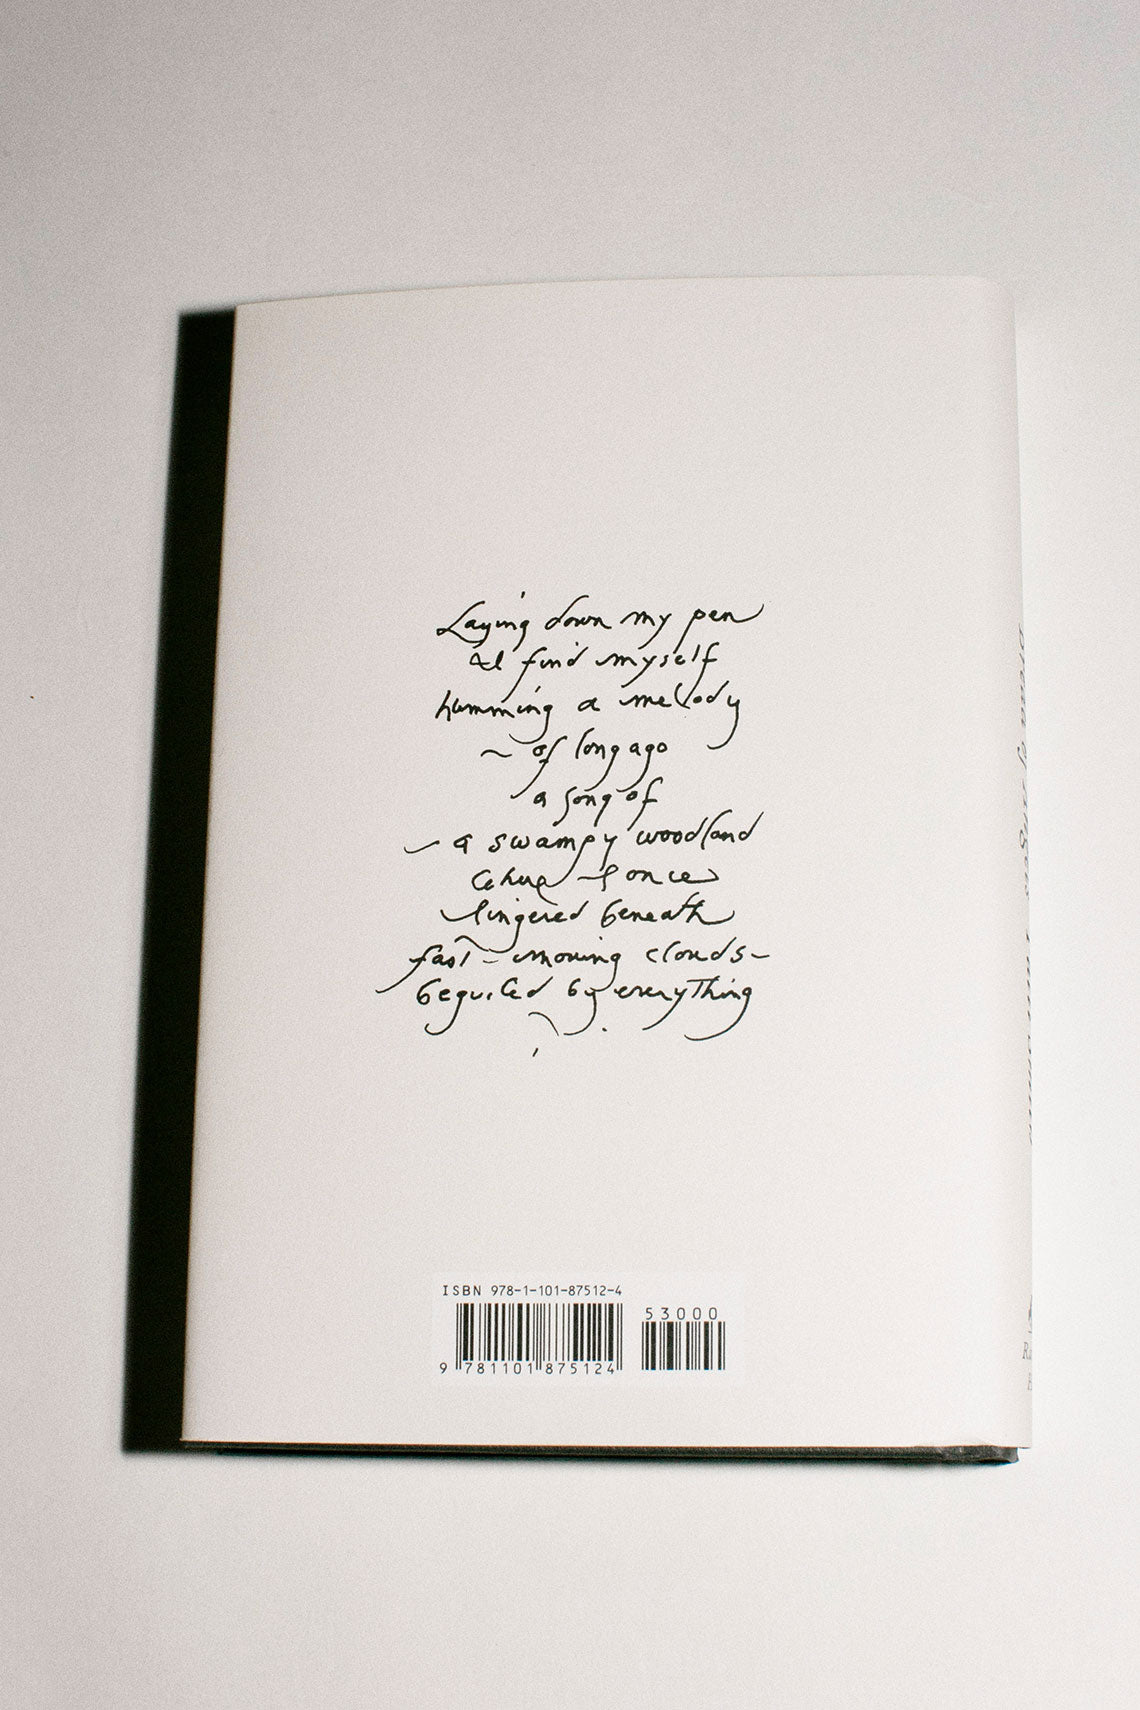 Laying down my pen
I find myself
humming a melody
of long ago
a song of
a swampy woodland
where I once
lingered beneath
fast-moving clouds-
beguiled by everything
ISBN 978-1-101-87512-4
53000
9 781101 875124